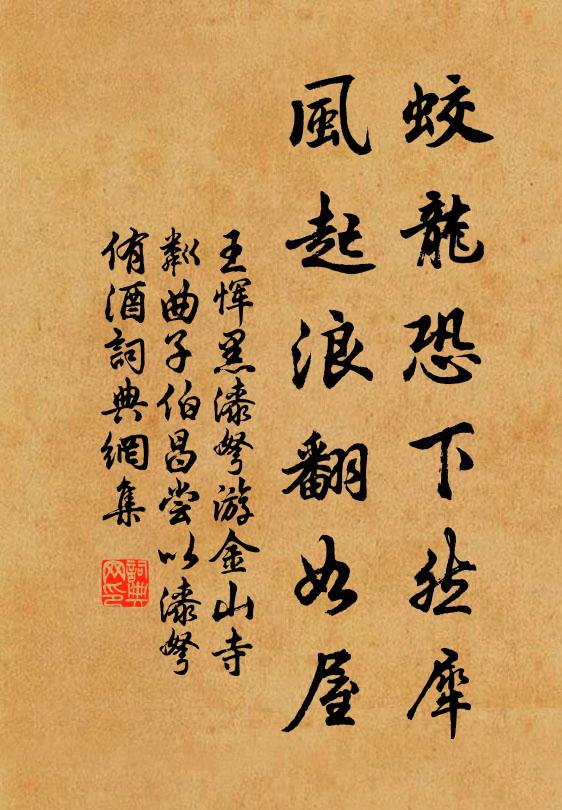 蛟龍恐下然犀
風起浪翻如屋
王惲黑漆弩游金山寺
鄰曲子伯昌嘗以漆弩
侑酒詞典網集
詞典網印